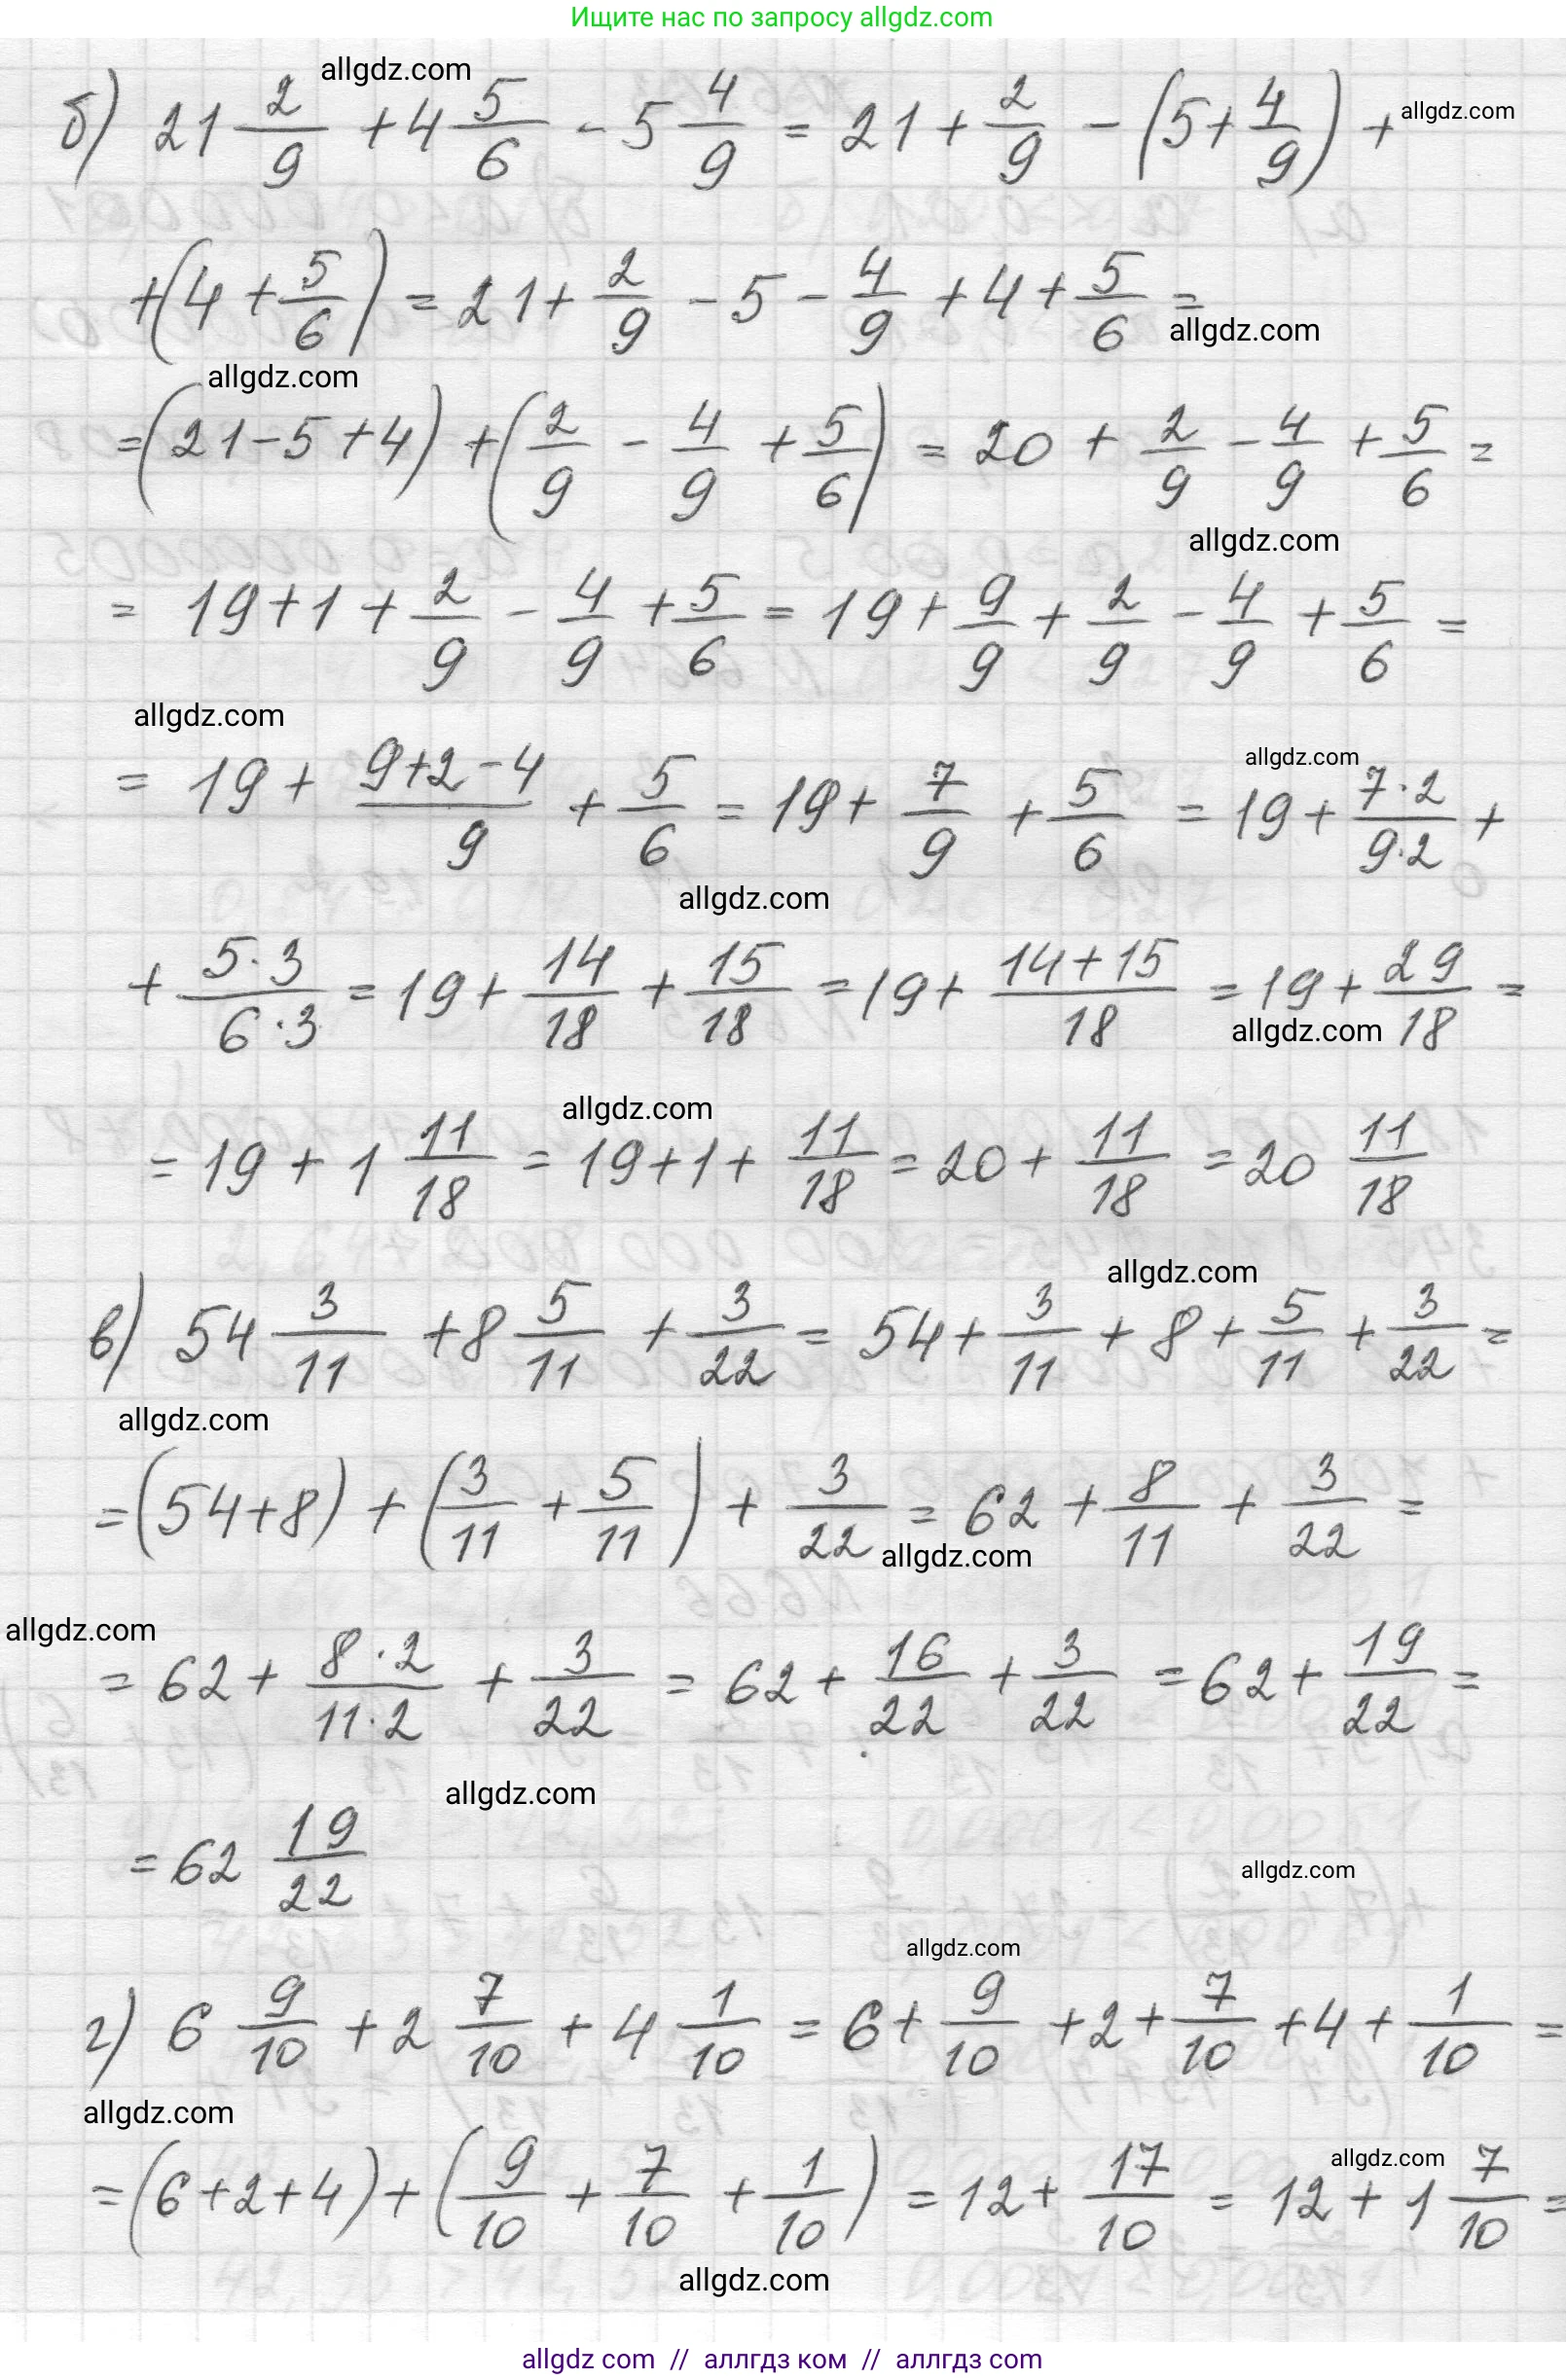 Ищите нас по запросу allgdz.com
allgdz.com
б) 21 2/9 + 4 5/6 - 5 4/9 = 21 + 2/9 - (5 + 4/9) +
allgdz.com
+ (4 + 5/6) = 21 + 2/9 - 5 - 4/9 + 4 + 5/6 =
allgdz.com
allgdz.com
= (21 - 5 + 4) + (2/9 - 4/9 + 5/6) = 20 + 2/9 - 4/9 + 5/6 =
allgdz.com
= 19 + 1 + 2/9 - 4/9 + 5/6 = 19 + 9/9 + 2/9 - 4/9 + 5/6 =
allgdz.com
allgdz.com
= 19 + (9+2-4)/9 + 5/6 = 19 + 7/9 + 5/6 = 19 + (7·2)/(9·2) +
allgdz.com
+ (5·3)/(6·3) = 19 + 14/18 + 15/18 = 19 + (14+15)/18 = 19 + 29/18 =
allgdz.com
allgdz.com
= 19 + 1 11/18 = 19 + 1 + 11/18 = 20 + 11/18 = 20 11/18
allgdz.com
в) 54 3/11 + 8 5/11 + 3/22 = 54 + 3/11 + 8 + 5/11 + 3/22 =
allgdz.com
= (54 + 8) + (3/11 + 5/11) + 3/22 = 62 + 8/11 + 3/22 =
allgdz.com
allgdz.com
= 62 + (8·2)/(11·2) + 3/22 = 62 + 16/22 + 3/22 = 62 + 19/22 =
allgdz.com
= 62 19/22
allgdz.com
allgdz.com
г) 6 9/10 + 2 7/10 + 4 1/10 = 6 + 9/10 + 2 + 7/10 + 4 + 1/10 =
allgdz.com
allgdz.com
= (6 + 2 + 4) + (9/10 + 7/10 + 1/10) = 12 + 17/10 = 12 + 1 7/10 =
allgdz.com
allgdz com // аллгдз ком // аллгдз com